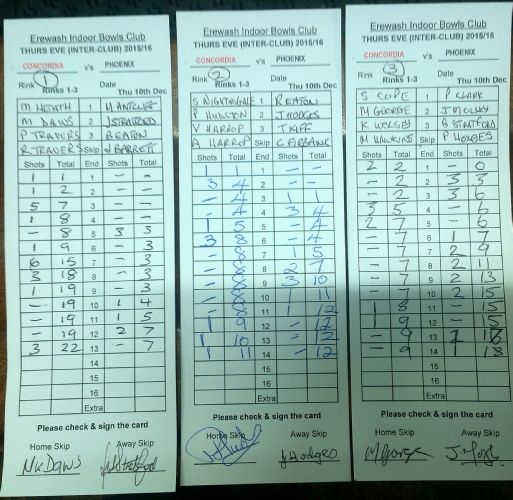 Erewash Indoor Bowls Club
THURS EVE (INTER-CLUB) 2015/16
CONCORDIA v's PHOENIX
Rink 1 Rinks 1-3 Date Thu 10th Dec
M HEATH 1
M DAWS 2 J STRATFORD
P TRAVERS 3 B EATON
R TRAVERS Skip J BARRETT
Shots Total End Shots Total
1 1 1 - -
1 2 2 - -
5 7 3 - -
1 8 4 - -
- 8 5 3 3
1 9 6 - 3
6 15 7 - 3
3 18 8 - 3
1 19 9 - 3
- 19 10 1 4
- 19 11 1 5
- 19 12 2 7
3 22 13 - 7
14
15
16
Extra
Please check & sign the card
Home Skip Away Skip
N K Daws
Erewash Indoor Bowls Club
THURS EVE (INTER-CLUB) 2015/16
CONCORDIA v's PHOENIX
Rink 2 Rinks 1-3 Date Thu 10th Dec
S NIGHTINGALE 1 R EATON
P HUDSON 2 J HODGES
V HARROP 3
A HARROP Skip C FIRBANK
Shots Total End Shots Total
1 1 1 - -
3 4 2 - -
- 4 3 1 1
- 4 4 3 4
1 5 5 - 4
3 8 6 - 4
- 8 7 1 5
- 8 8 2 7
- 8 9 3 10
- 8 10 1 11
- 8 11 1 12
1 9 12 - 12
1 10 13 - 12
1 11 14 - 12
15
16
Extra
Please check & sign the card
Home Skip Away Skip
J Hodges
Erewash Indoor Bowls Club
THURS EVE (INTER-CLUB) 2015/16
CONCORDIA v's PHOENIX
Rink 3 Rinks 1-3 Date Thu 10th Dec
S COPE 1 P CLARK
M GEORGE 2
K WOLSEY 3 B STATFORD
M HAWKINS Skip P HODGES
Shots Total End Shots Total
2 2 1 - 0
- 2 2 3 3
- 2 3 3 6
3 5 4 - 6
2 7 5 - 6
- 7 6 1 7
- 7 7 2 9
- 7 8 2 11
- 7 9 2 13
- 7 10 2 15
1 8 11 - 15
1 9 12 - 15
- 9 13 2
- 9 14 1 18
15
16
Extra
Please check & sign the card
Home Skip Away Skip
M George